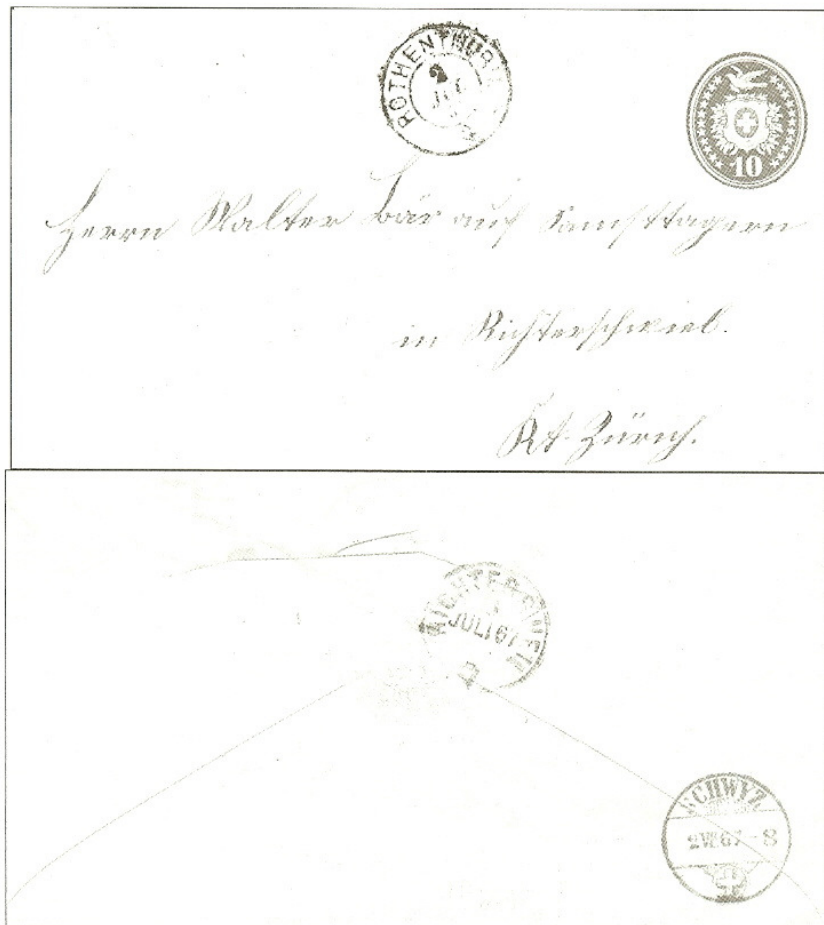 ROTHENTHURM
2
JUL
10
Herrn Walter Bär auf Samsttagern
in Richterschweil.
Kt. Zürich.
RICHTERSCHWEIL
JULI 67
SCHWYZ
2 VII 67 - 8